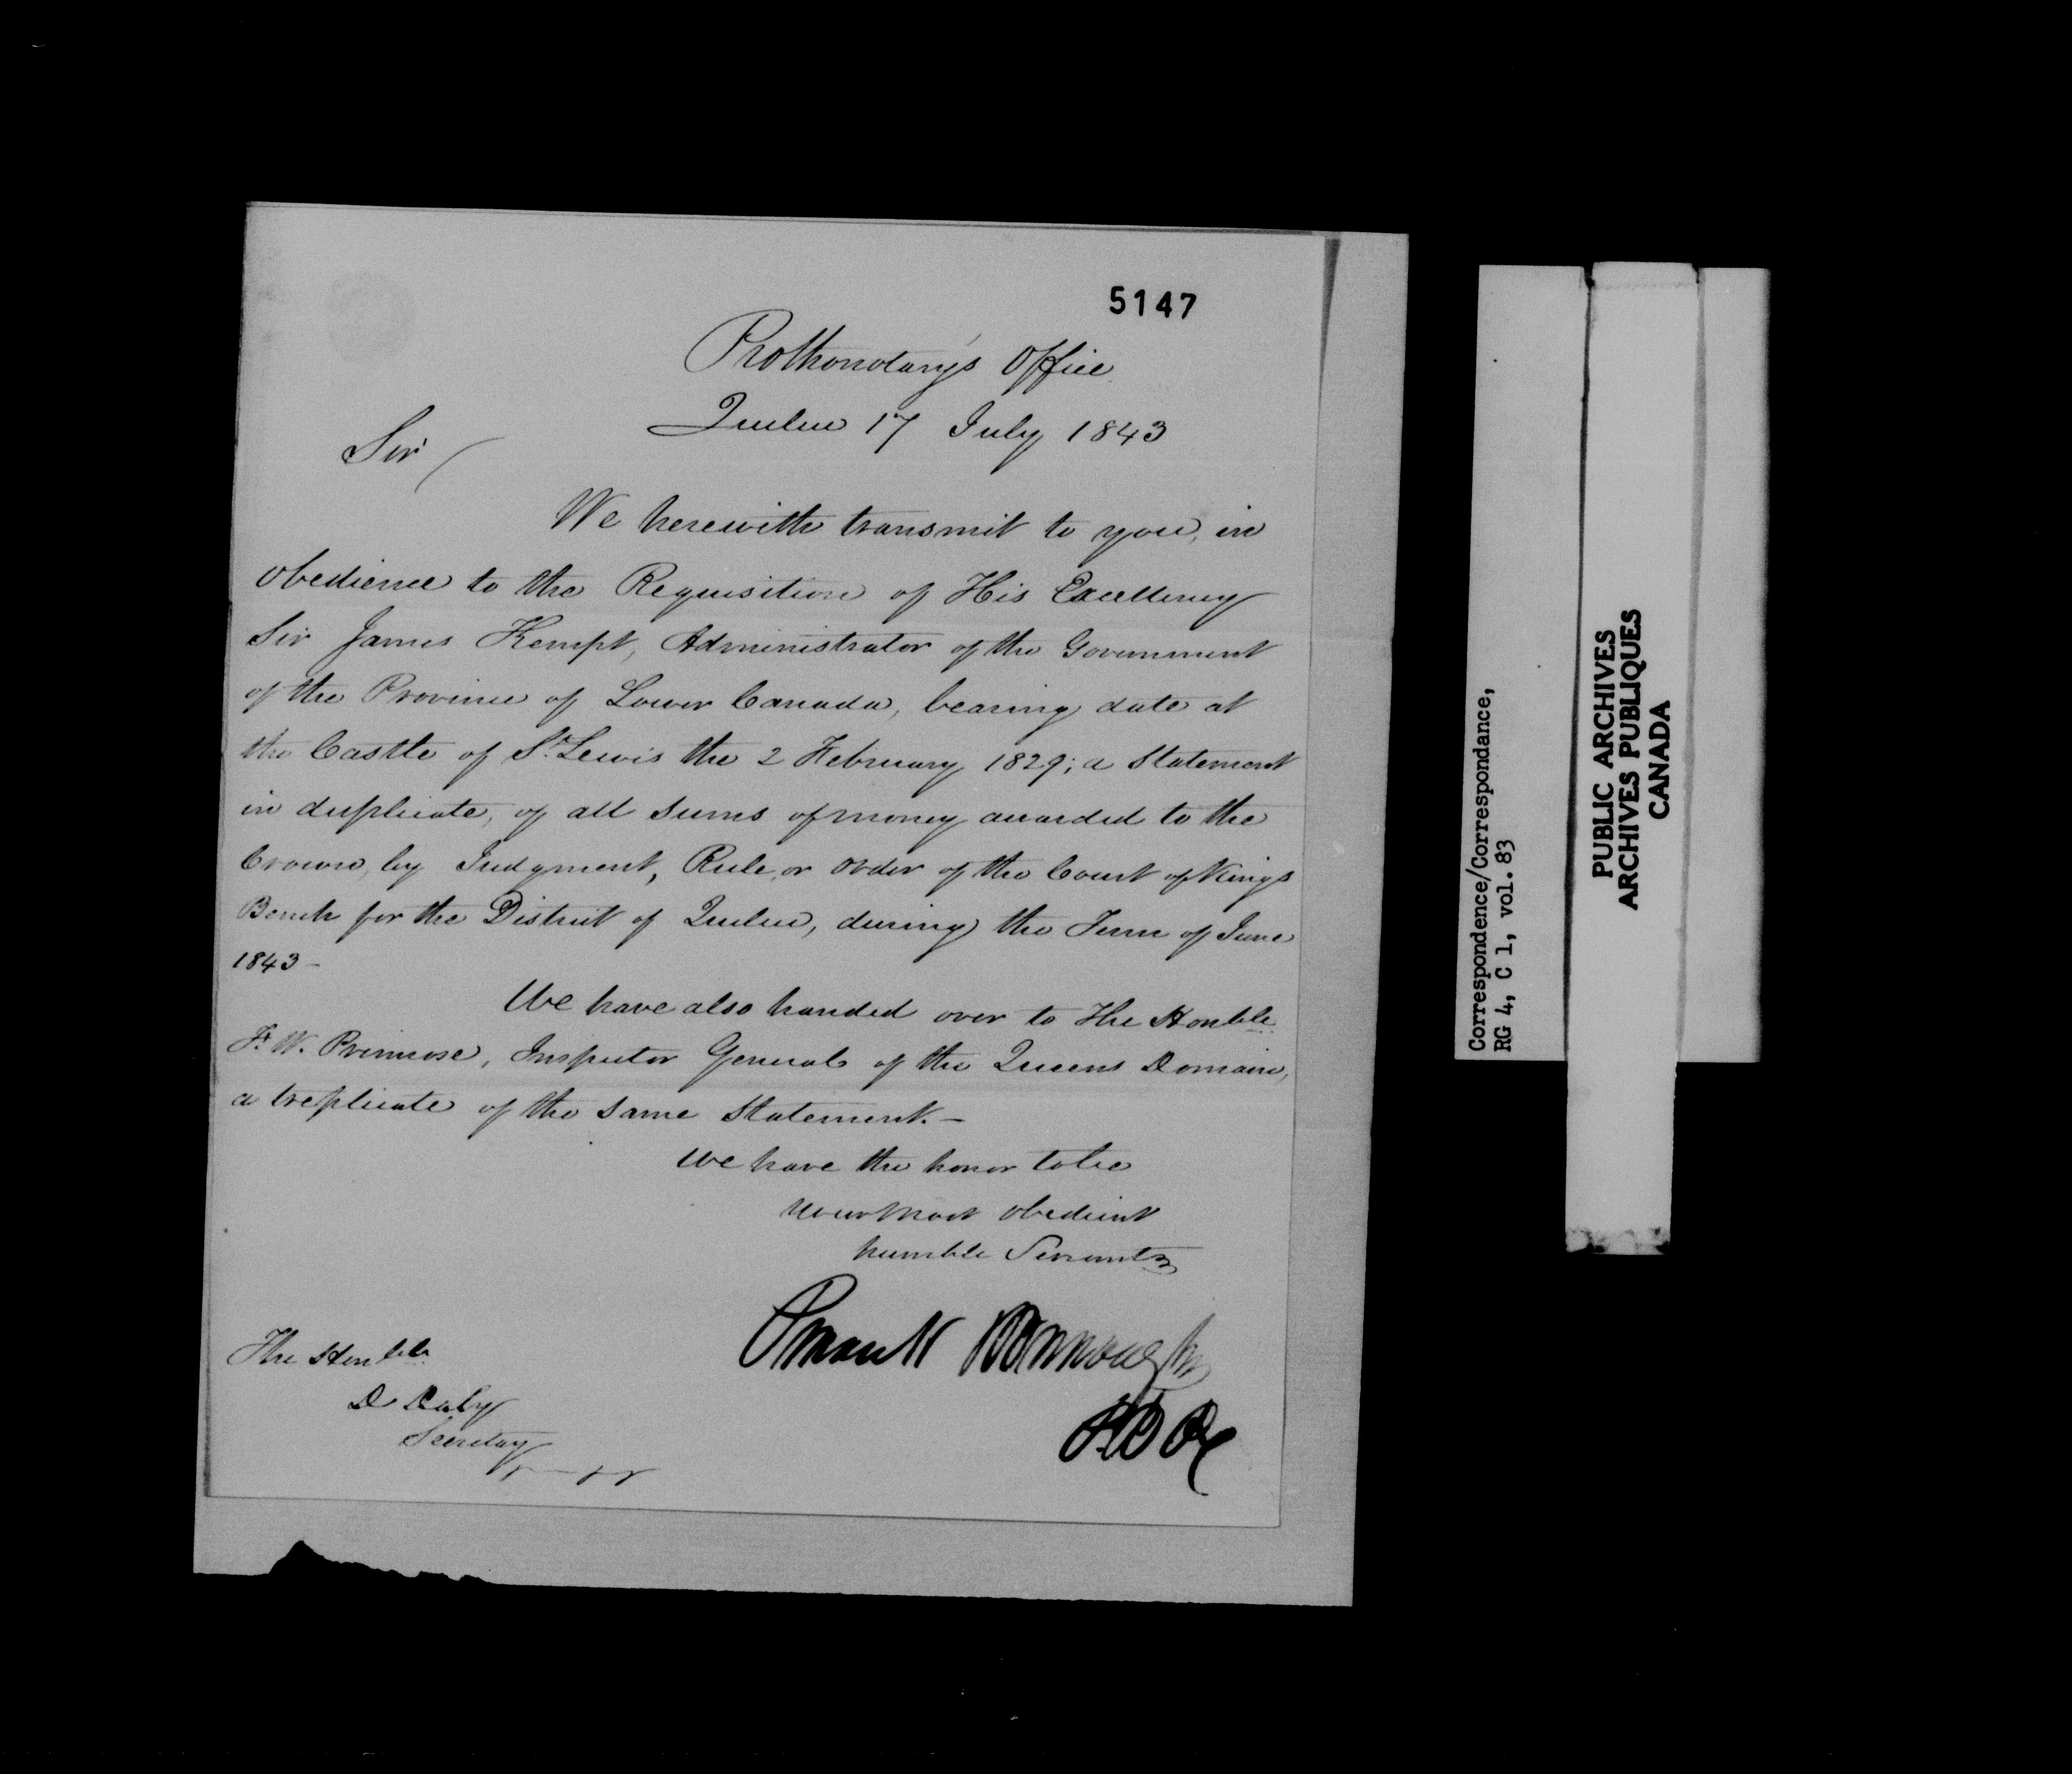 5147
Prothonotary's Office
Quebec 17 July 1843
Sir
We herewith transmit to you, in
obedience to the Requisition of His Excellency
Sir James Kempt, Administrator of the Government
of the Province of Lower Canada, bearing date at
the Castle of St. Lewis the 2 February 1829; a Statement
in duplicate, of all sums of money awarded to the
Crown, by Judgment, Rule, or order of the Court of Kings
Bench for the District of Quebec, during the Term of June
1843 -
We have also handed over to The Honble
F. W. Primrose, Inspector General of the Queens Domain,
a treplicate of the same Statement. -
We have the honor to be
Your most obedient
humble Servants
Perrault Burroughs
The Honble
D Daly
Secretary
Correspondence/Correspondance,
RG 4, C 1, vol. 83
PUBLIC ARCHIVES
ARCHIVES PUBLIQUES
CANADA